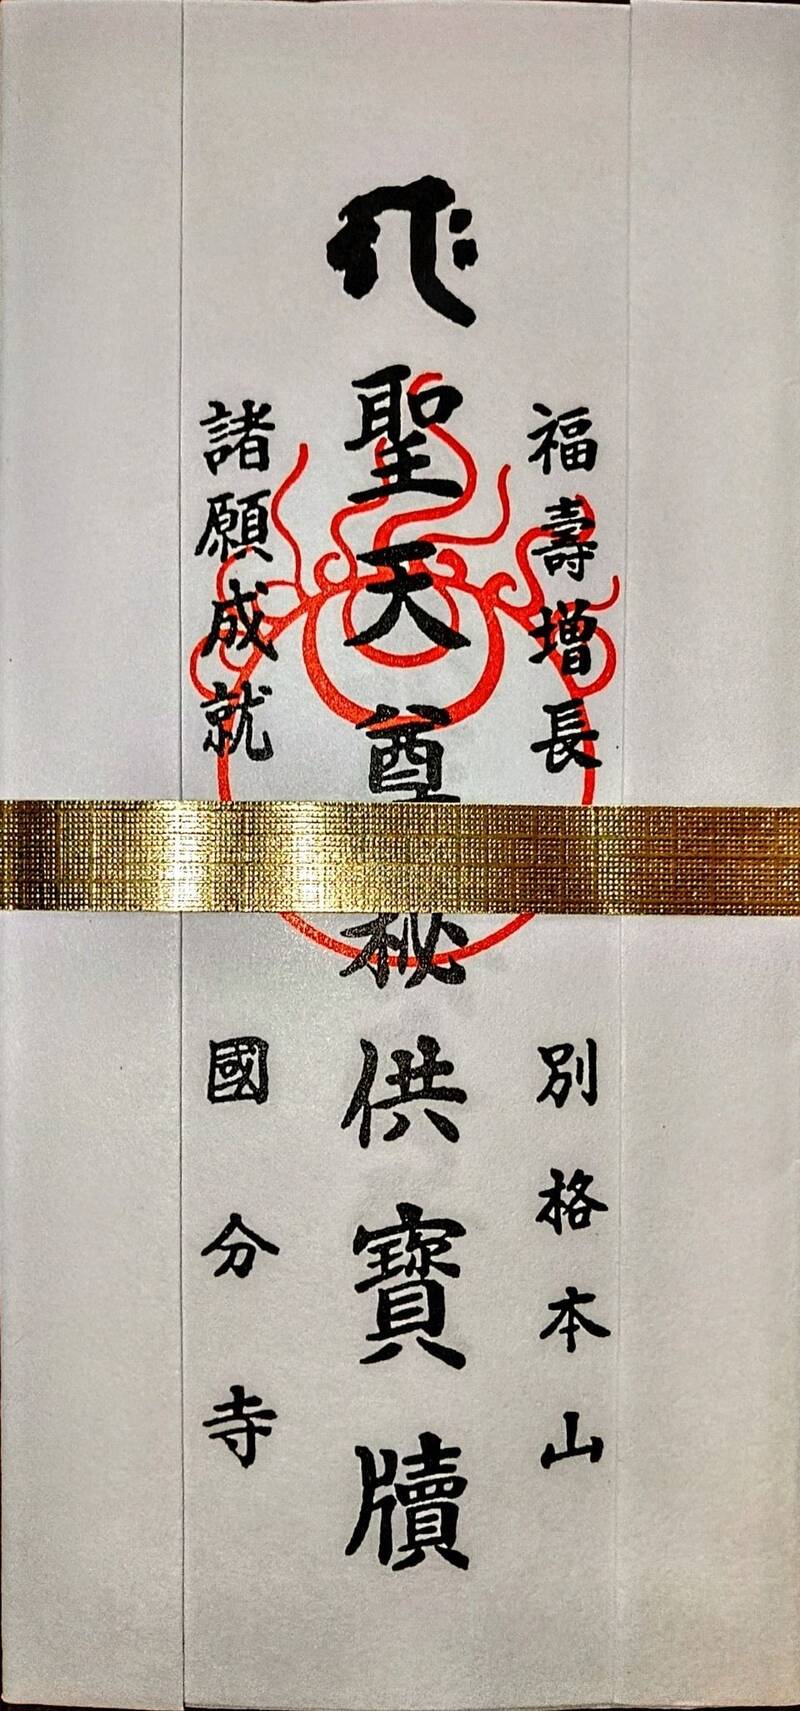 福壽增長
別格本山
聖天尊秘供寶牘
諸願成就
國分寺